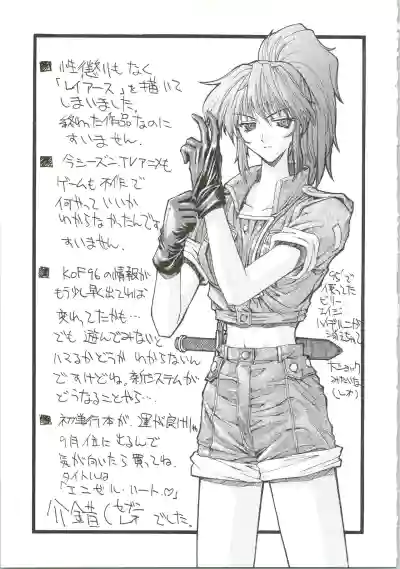 性懲りもなく
「レイアース」を描いて
しまいました。
終わった作品なのに
すいません。
今シーズンTVアニメも
ゲームも不作で
何やっていいか
わからなかったんです
すいません。
KOF96の情報が
もう少し早く出てれば
変わってたかも…
でも遊んでみないと
ハマるかどうかわからないん
ですけどね。新システムが
どうなることやら…
初単行本が、運が良ければ
9月位に出るんで
気が向いたら買ってね。
タイトルは
「エンゼル・ハート♡」
介錯 でした。
95'で
使ってた
ビリー
エイジ
ハイデルンが
消えちゃって
大ショック
みたいな